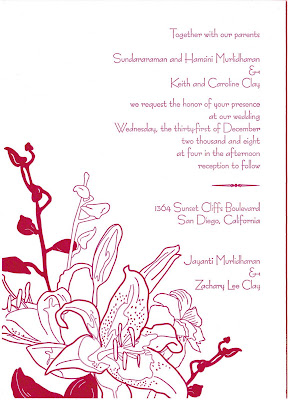 Together with our parents
Sundararaman and Hamsini Murlidharan
&
Keith and Caroline Clay
we request the honor of your presence
at our wedding
Wednesday, the thirty-first of December
two thousand and eight
at four in the afternoon
reception to follow
1364 Sunset Cliffs Boulevard
San Diego, California
Jayanti Murlidharan
&
Zachary Lee Clay